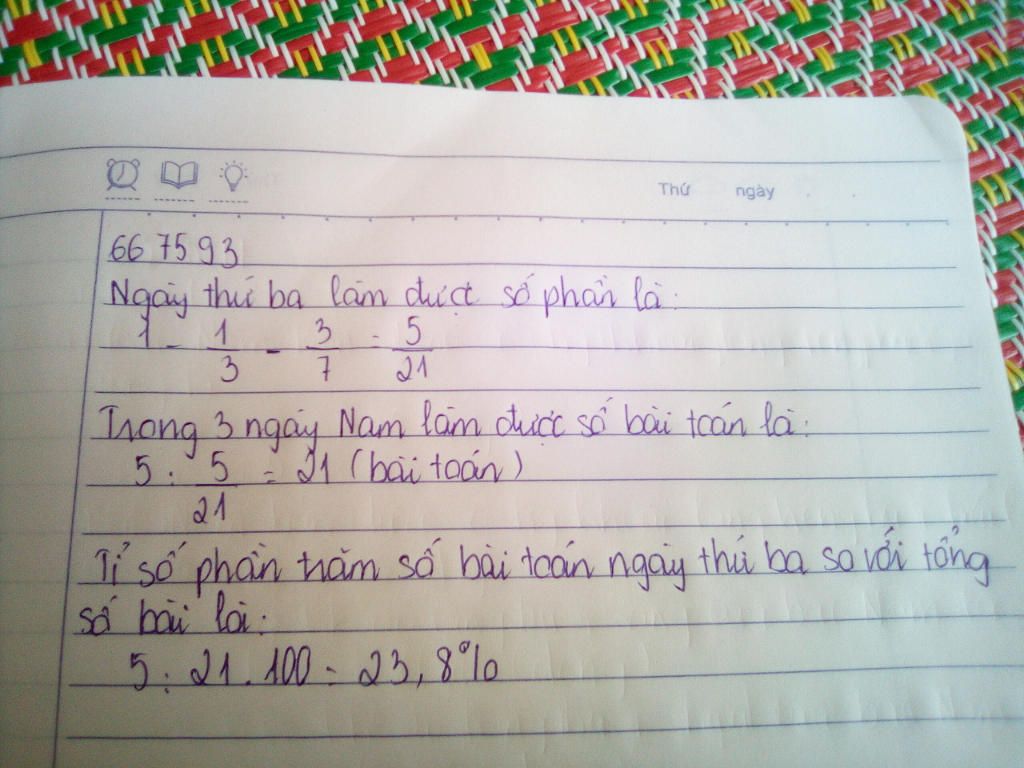 Thứ ngày
66 75 93
Ngày thứ ba làm được số phần là:
1 - 1/3 - 3/7 = 5/21
Trong 3 ngày Nam làm được số bài toán là:
5 : 5/21 = 21 (bài toán)
Tỉ số phần trăm số bài toán ngày thứ ba so với tổng
số bài là:
5 : 21 . 100 = 23,8%